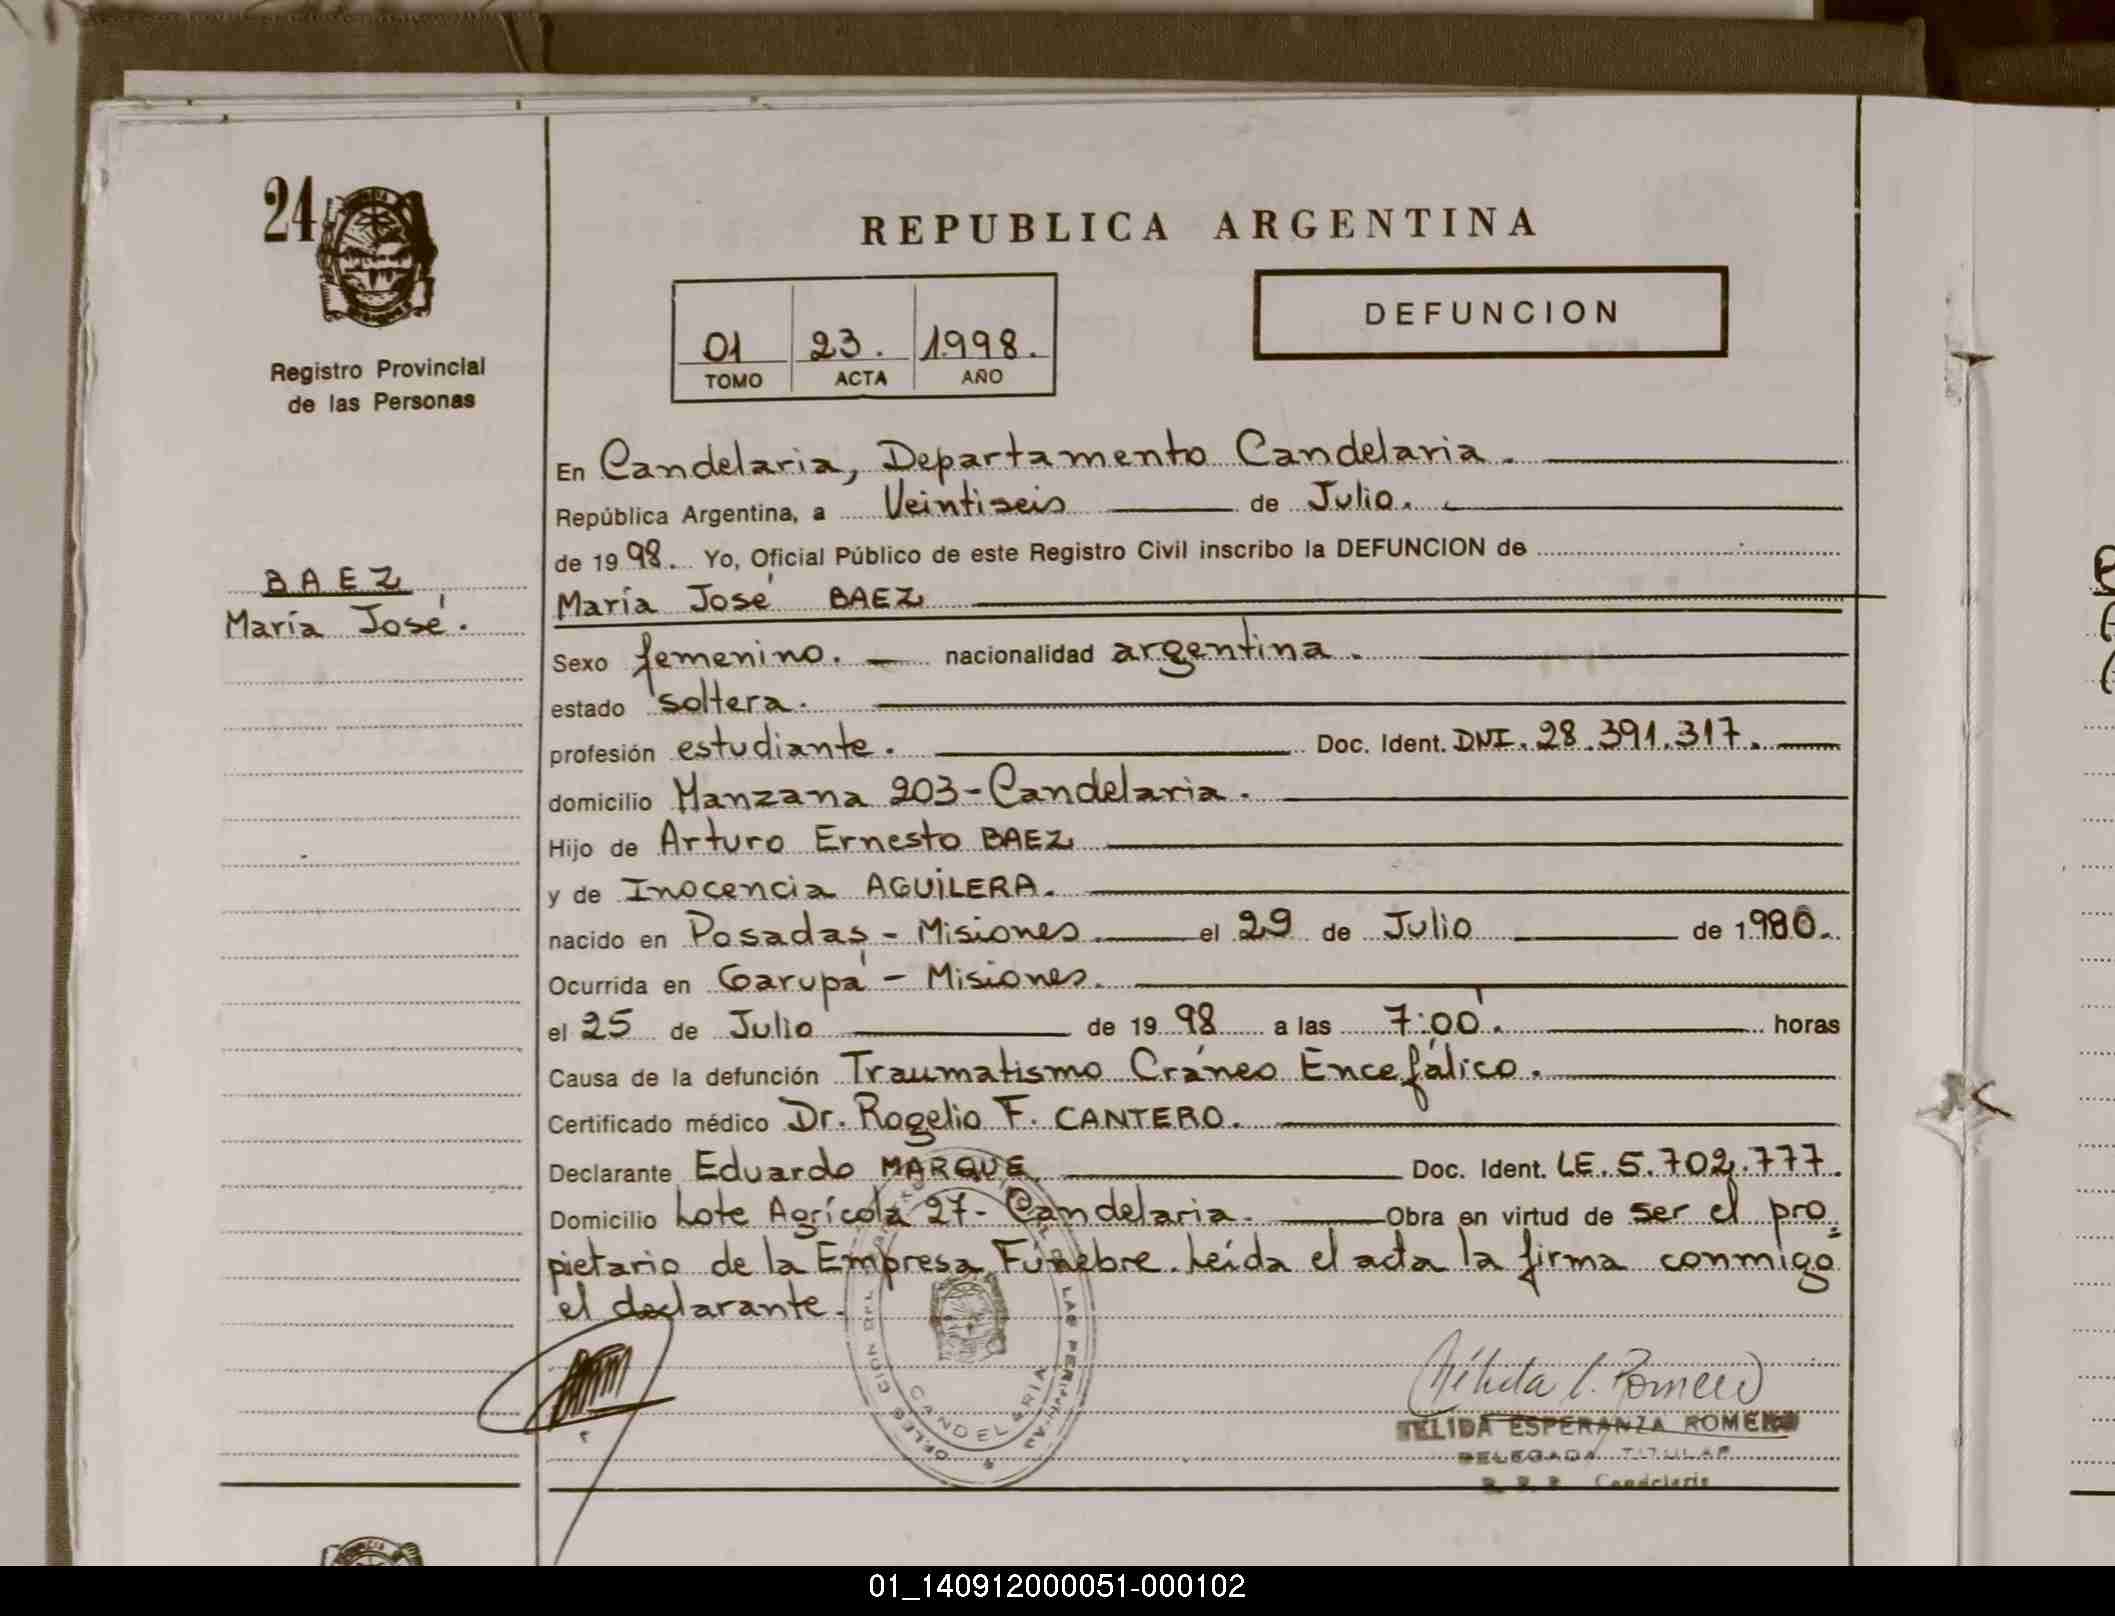 24
REPUBLICA ARGENTINA
01 23. 1.998.
TOMO ACTA AÑO
DEFUNCION
Registro Provincial
de las Personas
BAEZ
María José.
En Candelaria, Departamento Candelaria.
República Argentina, a Veintiseis de Julio.
de 19 98. Yo, Oficial Público de este Registro Civil inscribo la DEFUNCION de
María José BAEZ
Sexo femenino. nacionalidad argentina.
estado soltera.
profesión estudiante. Doc. Ident. DNI. 28.391.317.
domicilio Manzana 203-Candelaria.
Hijo de Arturo Ernesto BAEZ
y de Inocencia AGUILERA.
nacido en Posadas - Misiones el 29 de Julio de 1980.
Ocurrida en Garupá - Misiones.
el 25 de Julio de 19 98 a las 7:00'. horas
Causa de la defunción Traumatismo Cráneo Encefálico.
Certificado médico Dr. Rogelio F. CANTERO.
Declarante Eduardo MARQUE. Doc. Ident. LE. 5.702.777.
Domicilio Lote Agrícola 27- Candelaria. Obra en virtud de ser el pro
pietario de la Empresa Fúnebre. Leída el acta la firma conmigo
el declarante.
CANDELARIA
Nélida E. Romero
NELIDA ESPERANZA ROMERO
DELEGADA TITULAR
R. P. P. Candelaria
01_140912000051-000102